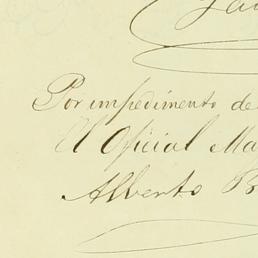 Por impedimento de
El Oficial Ma
Alberto B